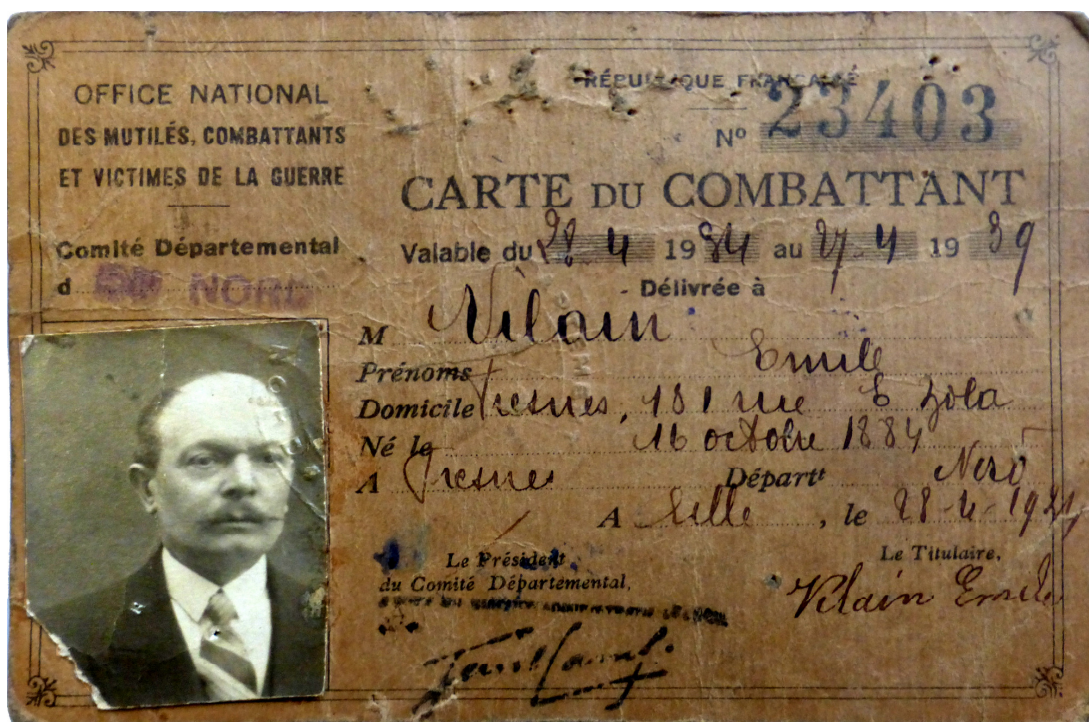 OFFICE NATIONAL
DES MUTILÉS, COMBATTANTS
ET VICTIMES DE LA GUERRE
Comité Départemental
d DU NORD
RÉPUBLIQUE FRANÇAISE
Nº 23403
CARTE DU COMBATTANT
Valable du 28 4 1934 au 27-4 1939
Délivrée à
M Vilain
Prénoms Emile
Domicile Fresnes, 181 rue E Zola
Né le 16 octobre 1884
A Fresnes Départt Nord
A Lille, le 28-4-1934
Le Président
du Comité Départemental,
Le Titulaire,
Vilain Emile